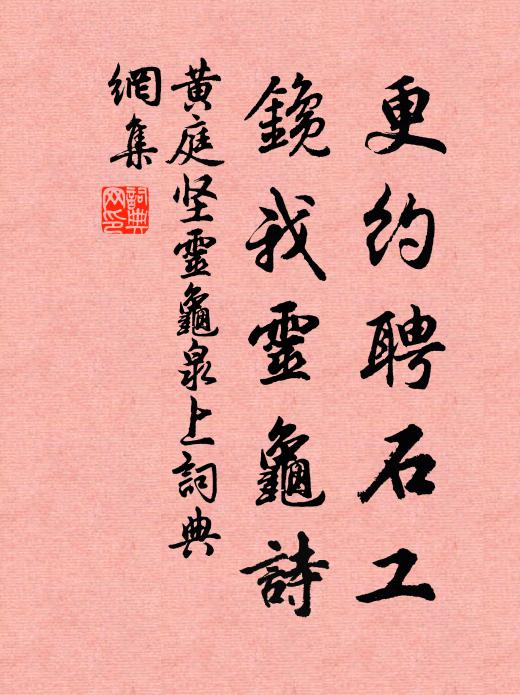 更約聘石工
鑱我靈龜詩
黄庭坚靈龜泉上詞典
網集
詞典
网印